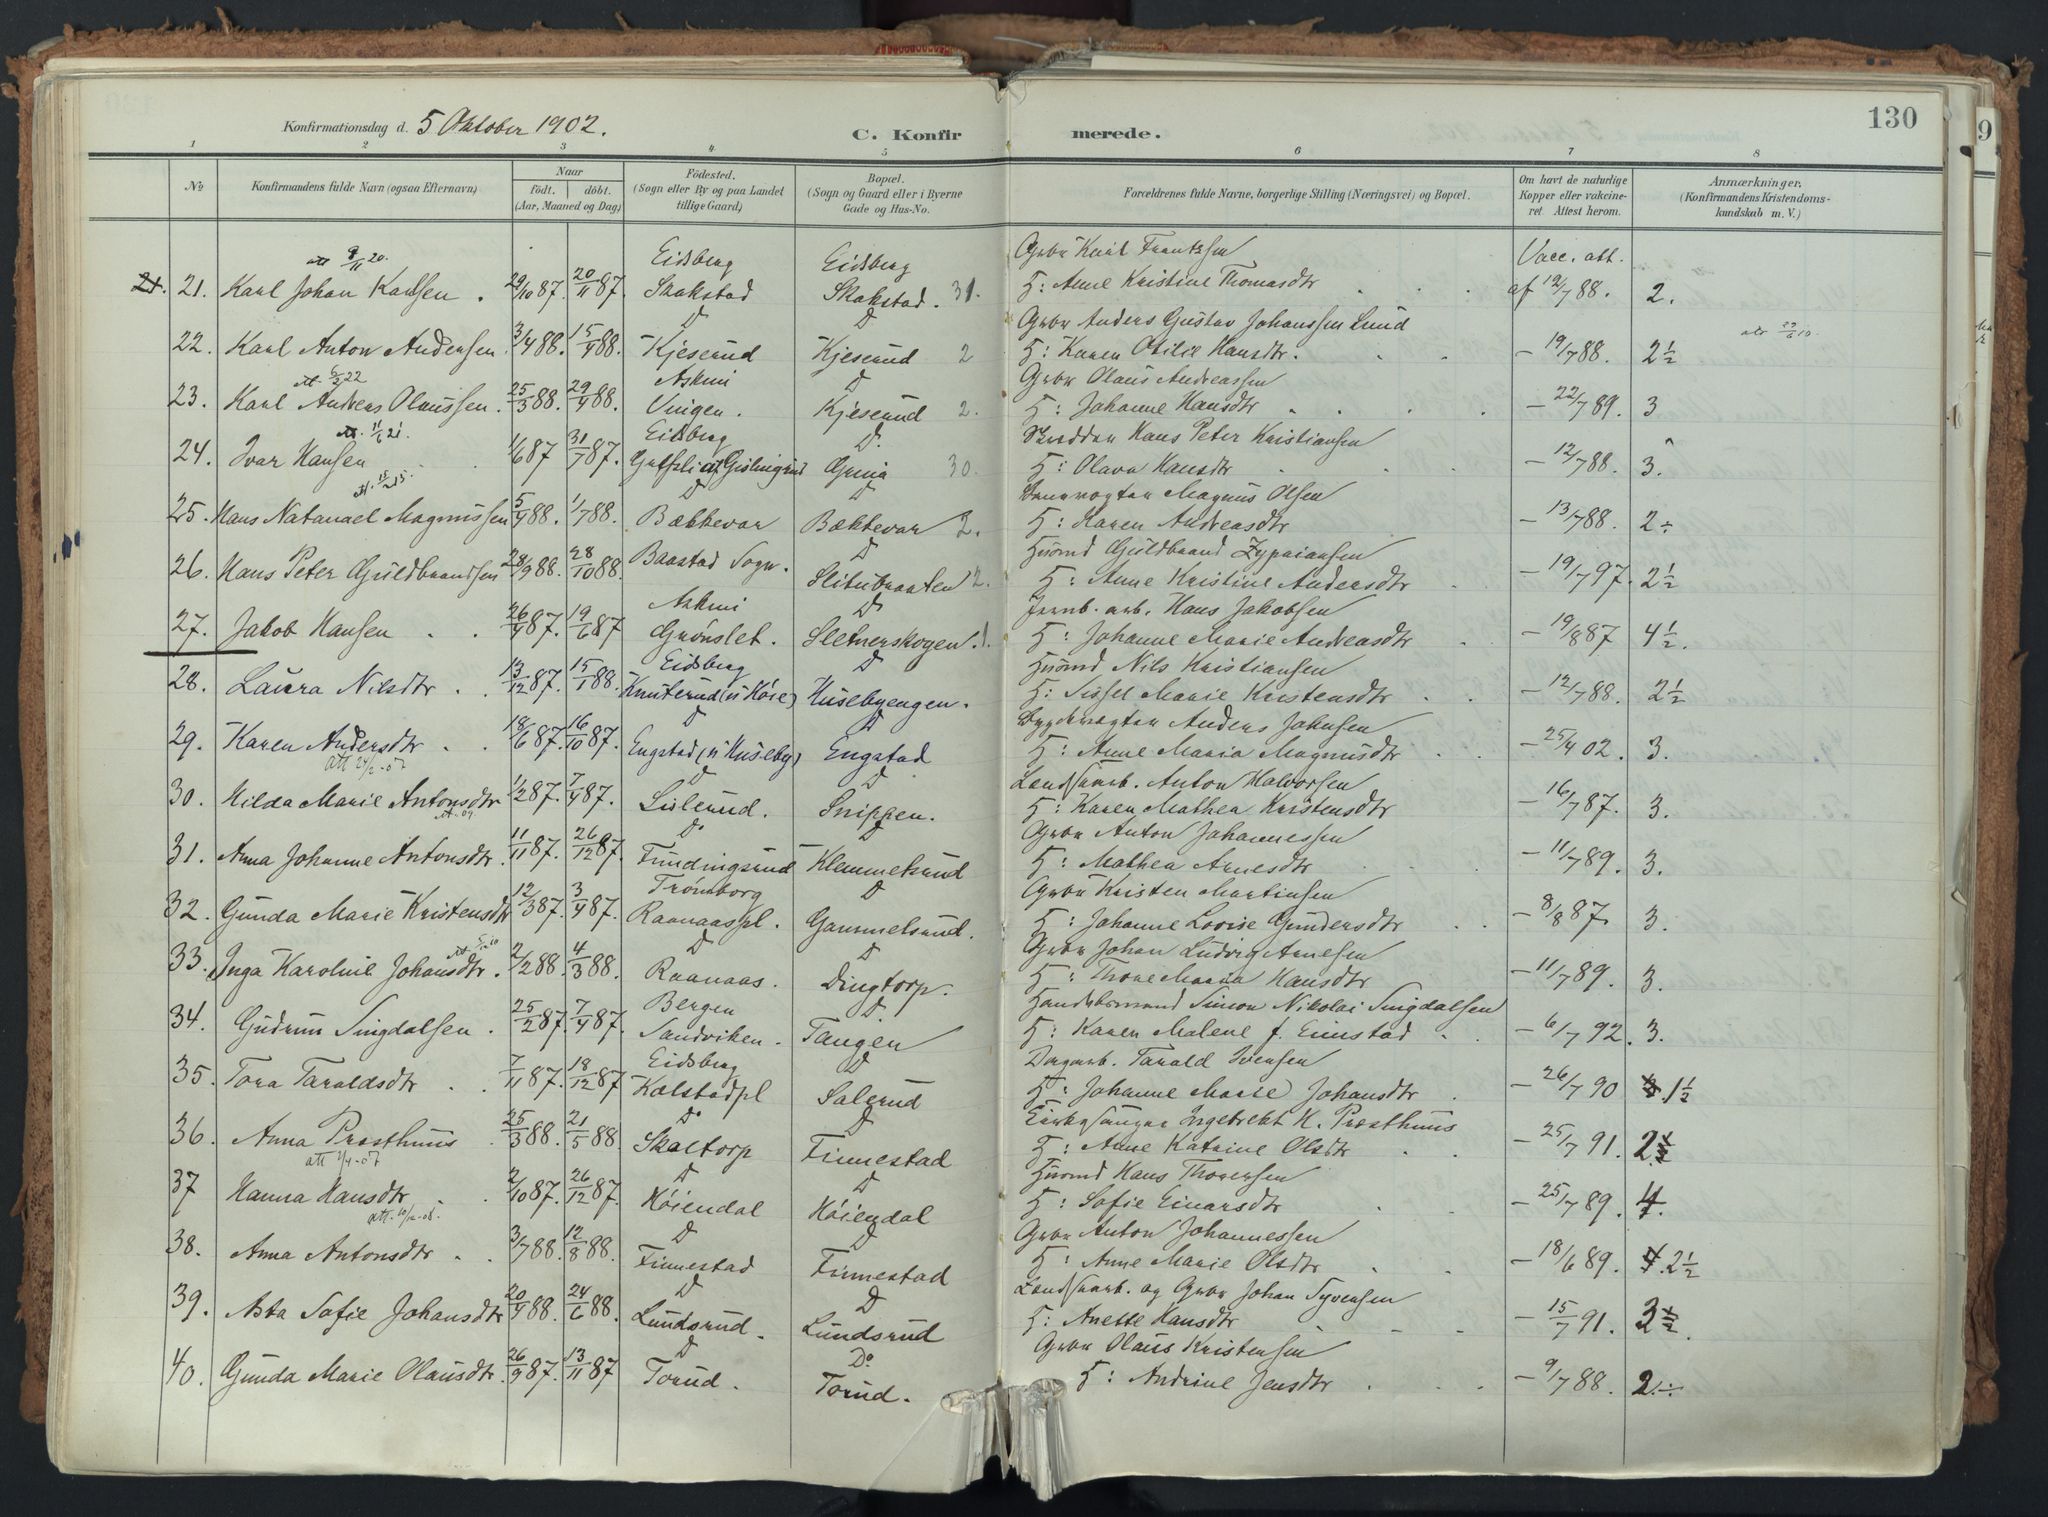 130
Konfirmationsdag d. 5 Oktober 1902.
C. Konfirmerede.
1 2 3 4. 5 6 7 8
No
Konfirmandens fulde Navn (ogsaa Efternavn)
Naar
født. døbt.
(Aar, Maaned og Dag)
Fødested.
(Sogn eller By og paa Landet
tillige Gaard)
Bopæl.
(Sogn og Gaard eller i Byerne
Gade og Hus-No.
Forældrenes fulde Navne, borgerlige Stilling (Næringsvei) og Bopæl.
Om havt de naturlige
Kopper eller vakcine-
ret Attest herom.
Anmærkninger.
(Konfirmandens Kristendoms-
kundskab m. V.)
att 9/11 20. Eidsberg Eidsberg Grbr Karl Frantzsen Vacc. att.
21. 21. Karl Johan Karlsen. 29/10 87. 20/11 87. Skakstad Skakstad. 31. H: Anne Kristine Thomasdtr af 12/7 88. 2.
D D Grbr Anders Gustav Johanssen Lund
22. Karl Anton Andersen 3/4 88. 15/4 88. Kjeserud Kjeserud 2 H: Karen Otilie Hansdtr. – 19/7 88. 2½
att. 6/3 22 Askim D Grbr Olaus Andreassen
23. Karl Anders Olaussen. 25/3 88. 29/4 88. Vingen. Kjeserud 2. H: Johanne Hansdtr – 22/7 89. 3
att. 11/1 21. Eidsberg D. Skrædder Hans Peter Kristiansen
24. Ivar Hansen 1/6 87 31/7 87. Grini 30. H: Olava Hansdtr – 12/7 88. 3.
D D Banevogter Magnus Olsen
25. Hans Natanael Magnussen 5/4 88. 1/7 88. Bækkevar Bækkevar 2. H: Karen Andreasdtr – 13/7 88. 2÷
D Husmd Guldbrand Zypriansen
26. Hans Peter Guldbrandsen 28/9 88. 28/10 88. Baastad Sogn. Slitubraaten 2. H: Anne Kristine Andersdtr – 19/7 97. 2½
Askim D Jernb. arb. Hans Jakobsen
27. Jakob Hansen 26/4 87. 19/6 87 Grønslet. Sletnerskogen. 1. H: Johanne Marie Andreasdtr – 19/8 87 4½.
Eidsberg D Husmd Nils Kristiansen
28. Laura Nilsdtr 13/12 87. 15/1 88. Knuterud (u Høie) Husebyengen. H: Sissel Marie Kristensdtr – 12/7 88. 2½
D D Anders Johnsen
29. Karen Andersdtr 18/6 87. 16/10 87. Engstad (u Huseby) Engstad H: Anne Maria Magnusdtr – 25/4 02. 3.
att 24/2-07 D D Landhaarb. Anton Halvorsen
30. Hilda Marie Antonsdtr 1/2 87. 7/4 87. Lislerud. Snippen. H: Karen Mathea Kristensdtr – 16/7 87. 3.
D D Grbr Anton Johannessen
31. Anna Johanne Antonsdtr. 11/11 87. 26/12 87. Fundingsrud Klemmetsrud H: Mathea Arnesdtr – 11/7 89. 3.
Trømborg D Grbr Kristen Martinsen
32. Gunda Marie Kristensdtr 12/3 87. 3/4 87. Raanaaspl. Gammelsrud. H: Johanne Lovise Gundersdtr – 8/8 87. 3.
D D Grbr Johan Ludvig Arnesen
33. Inga Karoline Johansdtr. 2/2 88. 4/3 88. Raanaas. Dingtorp. H: Thone Maria Hansdtr – 11/7 89. 3.
Bergen D Handelsmand Simon Nikolai Singdalsen
34. Gudrun Singdalsen. 25/2 87. 7/4 87. Sandviken. Tangen H: Karen Malene f. Eimstad – 6/7 92. 3.
Eidsberg D Dagarb. Tarald Ivensen
35. Tora Taraldsdtr 7/11 87. 18/12 87 Kolstadpl Salerud H: Johanne Marie Johansdtr – 26/7 90 1½
D D Kirkesanger Ingebrekt K. Præsthuus
36. Anna Prasthuus 25/3 88. 21/5 88. Skaltorp Finnestad H: Anne Katrine Olsdtr – 25/7 91. 2½
att 2/4-07 D D Husmd Hans Thoresen
37 Hanna Hansdtr 2/10 87. 26/12 87. Høiendal Høiendal H: Sofie Einarsdtr – 25/7 89. 4.
att. 10/12-08. D D Grbr Anton Johannessen
38. Anna Antonsdtr 3/7 88. 12/8 88. Finnestad Finnestad H: Anne Marie Olsdtr – 18/6 89. 4. 2½
D D Landhaarb. og Grbr Johan Syvensen
39. Asta Sofie Johansdtr 20/4 88. 24/6 88. Lundsrud. Lundsrud H: Anette Hansdtr – 15/7 91. 3½.
D Do Grbr Olaus Kristensen
40. Gunda Marie Olausdtr 26/9 87. 13/11 87 Torud. Torud. H: Andrine Jensdtr – 9/7 88. 2.÷